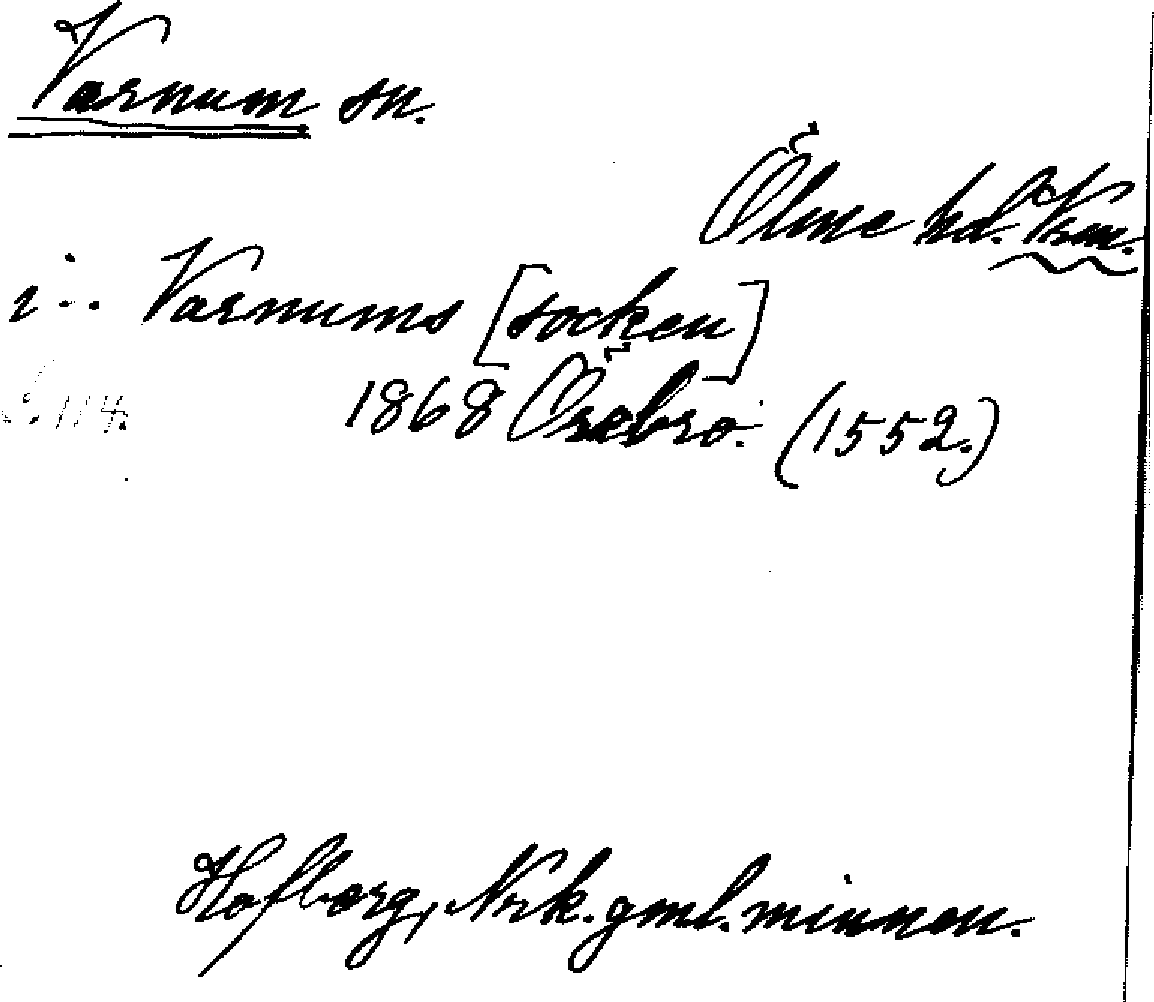 Varnum sn.
Ölme hd. Vrm.
i -- Varnums [socken]
S. 114.
1868 Örebro. (1552.)
Hofberg, Nrk. gml. minnen.